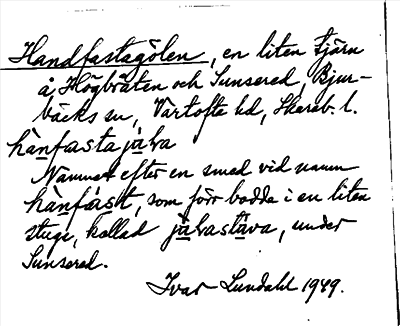 Handfastagölen, en liten tjärn
å Högbråten och Sunsered, Bjur-
bäcks sn, Vartofta hd, Skarab. l.
hànfasta jø̀ḷa
Namnet efter en smed vid namn
hànfàst, som förr bodde i en liten
stuga, kallad
under
Sunsered.
Ivar Lundahl 1949.